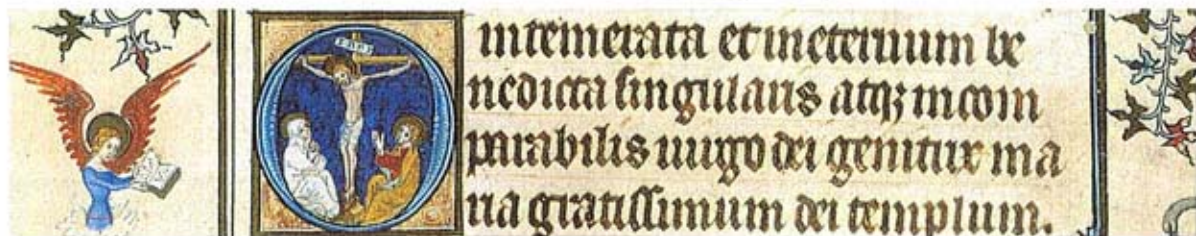 O intemerata et in eternum be
nedicta singularis atq; incom
parabilis uirgo dei genitrix ma
ria gratissimum dei templum.